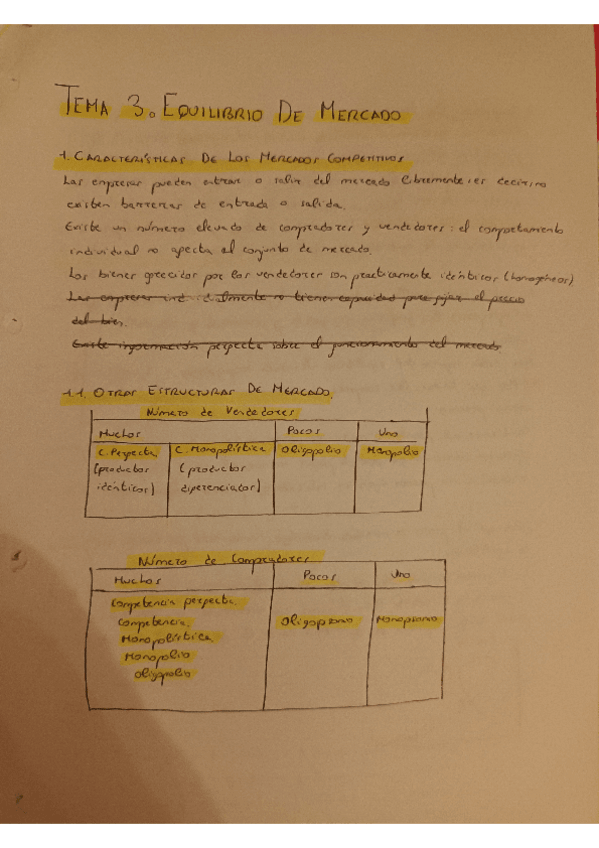 TEMA 3. EQUILIBRIO DE MERCADO
1. CARACTERÍSTICAS DE LOS MERCADOS COMPETITIVOS
Las empresas pueden entrar o salir del mercado libremente: es decir, no
existen barreras de entrada o salida.
Existe un número elevado de compradores y vendedores: el comportamiento
individual no afecta al conjunto de mercado.
Los bienes ofrecidos por los vendedores son practicamente idénticos (homogéneos)
Las empresas individualmente no tienen capacidad para fijar el precio
del bien.
Existe información perfecta sobre el funcionamiento del mercado.
1.1. OTRAS ESTRUCTURAS DE MERCADO.
Número de Vendedores
Muchos Pocos Uno
C. Perfecta C. Monopolística Oligopolio Monopolio
(productos (productos
idénticos) diferenciados)
Número de Compradores
Muchos Pocos Uno
Competencia perfecta.
Competencia Oligopsonio Monopsonio
Monopolística
Monopolio
Oligopolio